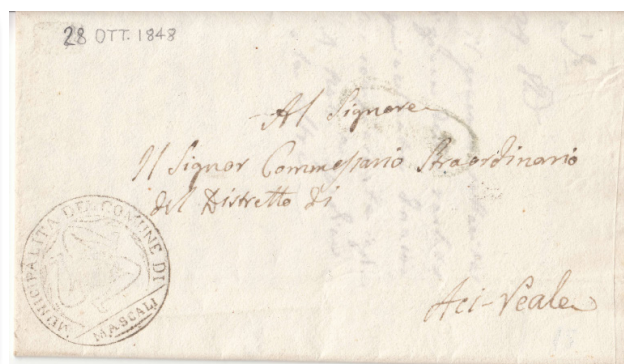 28 OTT. 1848
Al Signore
Il Signor Commessario Straordinario
del Distretto di
Aci-Reale
MUNICIPALITÀ DEL COMUNE DI
MASCALI